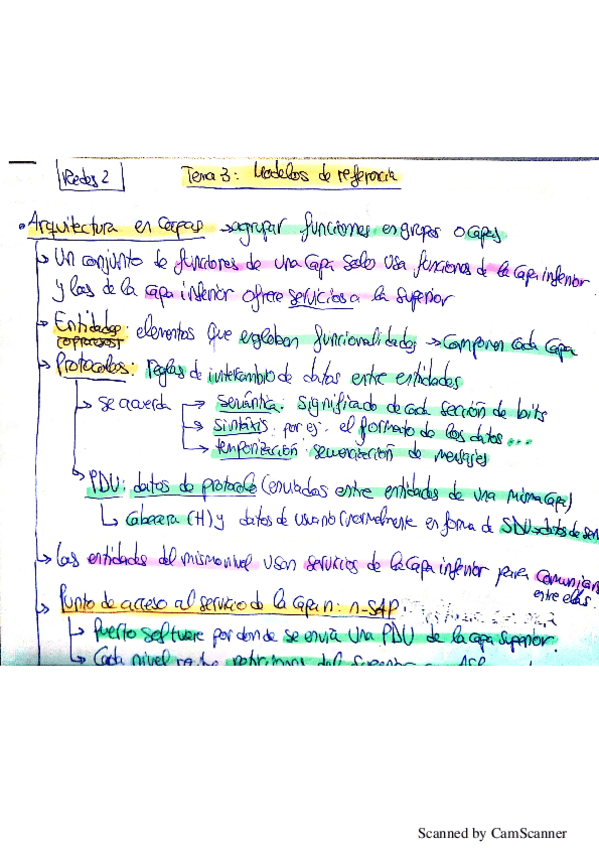 Redes 2
Tema 3: Modelos de referencia
• Arquitectura en capas → agrupar funciones en grupos o capas
↳ Un conjunto de funciones de una capa solo usa funciones de la capa inferior
y las de la capa inferior ofrece servicios a la superior
→ Entidades: elementos que engloban funcionalidades → componen cada capa
→ Protocolos: reglas de intercambio de datos entre entidades
→ se acuerda → semántica: significado de cada sección de bits
→ sintaxis: por ej. el formato de los datos...
→ temporización: secuenciación de mensajes
PDU: datos de protocolo (enviados entre entidades de una misma capa)
↳ Cabecera (H) y datos de usuario (normalmente en forma de SDU → datos de ser
→ Las entidades del mismo nivel usan servicios de la capa inferior para comunicar
entre ellas.
→ Punto de acceso al servicio de la capa n: n-SAP
↳ Puerto software por donde se envía una PDU de la capa superior.
↳ Cada nivel
Scanned by CamScanner